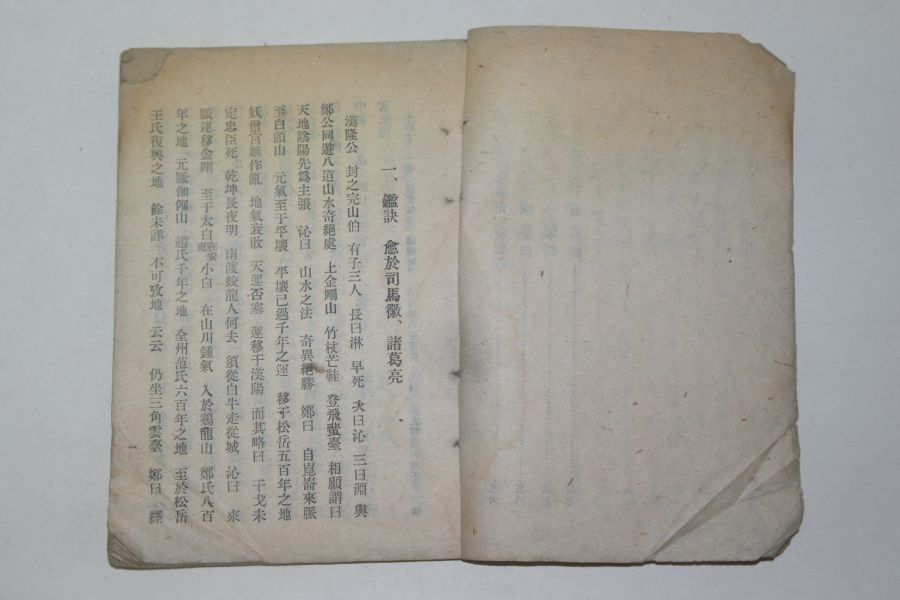 一、鑑訣 愈於司馬徽、諸葛亮
漢隆公 封之完山伯 有子三人 長曰淋 早死 次曰沁 三曰淵 與
鄭公同遊八道山水奇絕處 上金剛山 竹杖芒鞋 登飛蜚臺 相顧謂曰
天地陰陽先爲主張 沁曰 山水之法 奇異絕勝 鄭曰 自崑崙來脈
至白頭山 元氣至于平壤 平壤已過千年之運 移于松岳五百年之地
妖僧宮姬作亂 地氣衰敗 天運否塞 運移于漢陽 而其略曰 干戈未
定忠臣死 乾坤長夜明 南渡蛟龍人何去 須從白牛走從城 沁曰 來
脈運移金剛 至于太白在安東小白 在山川鍾氣 入於鷄龍山 鄭氏八百
年之地 元脈伽倻山 趙氏千年之地 全州范氏六百年之地 至於松岳
王氏復興之地 餘未詳 不可攷地 云云 仍坐三角雲臺 鄭曰 經